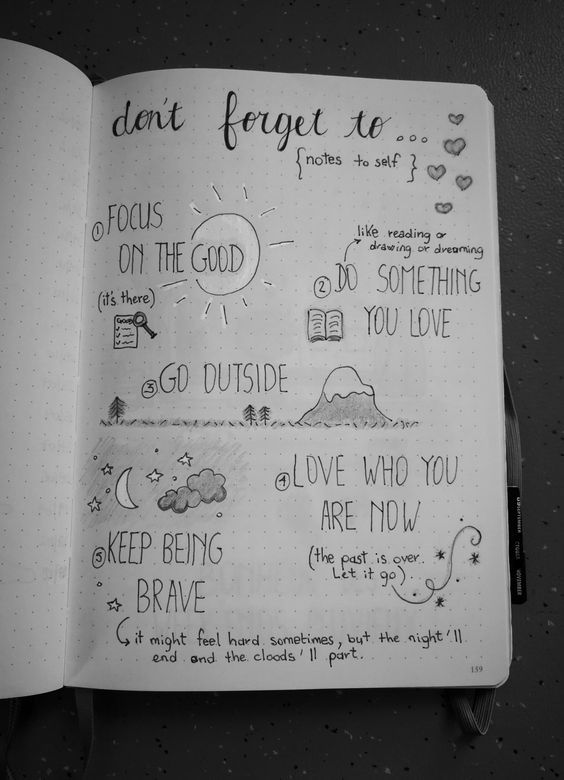 don't forget to...
{notes to self}
① FOCUS
ON THE GOOD
(it's there)
GOOD
like reading or
drawing or dreaming
② DO SOMETHING
YOU LOVE
③ GO OUTSIDE
④ LOVE WHO YOU
ARE NOW
(the past is over.
Let it go)
⑤ KEEP BEING
BRAVE
it might feel hard sometimes, but the night'll
end and the clouds'll part.
159
NOVEMBER